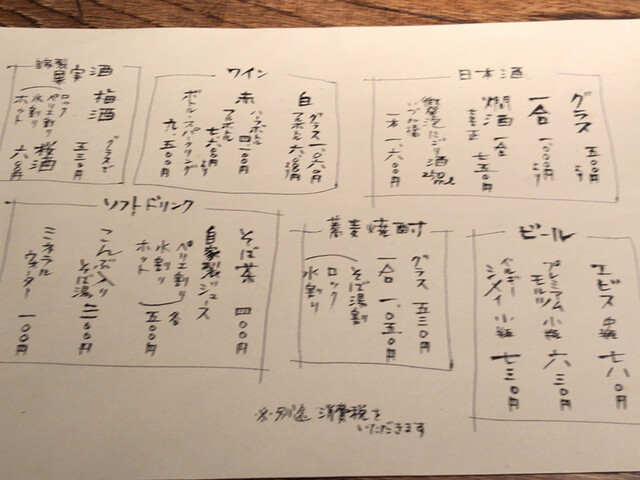 日本酒
グラス 五〇〇円より
一合 一、〇〇〇円より
燗酒 一合 七五〇円
微発泡にごり酒
一本 一、六〇〇円
ワイン
白 グラス 一、〇六〇円
赤 ハーフボトル
フルボトル
ボトル・スパークリング
九、五〇〇円
自家製果実酒
梅酒 グラスで 五三〇円
ロック
ペリエ割り
水割り
ホット
桜酒 六〇〇円
ビール
ヱビス 中瓶 七八〇円
プレミアムモルツ 小瓶 六三〇円
ベルギー
シメイ 小瓶 七三〇円
蕎麦焼酎
グラス 五三〇円
一合 一、〇五〇円
そば湯割り
ロック
水割り
ソフトドリンク
そば茶 四〇〇円
自家製ジュース
ペリエ割り
水割り
ホット
各五〇〇円
こんぶ入り
そば湯 二〇〇円
ミネラル
ウォーター 一〇〇円
※別途 消費税を
いただきます